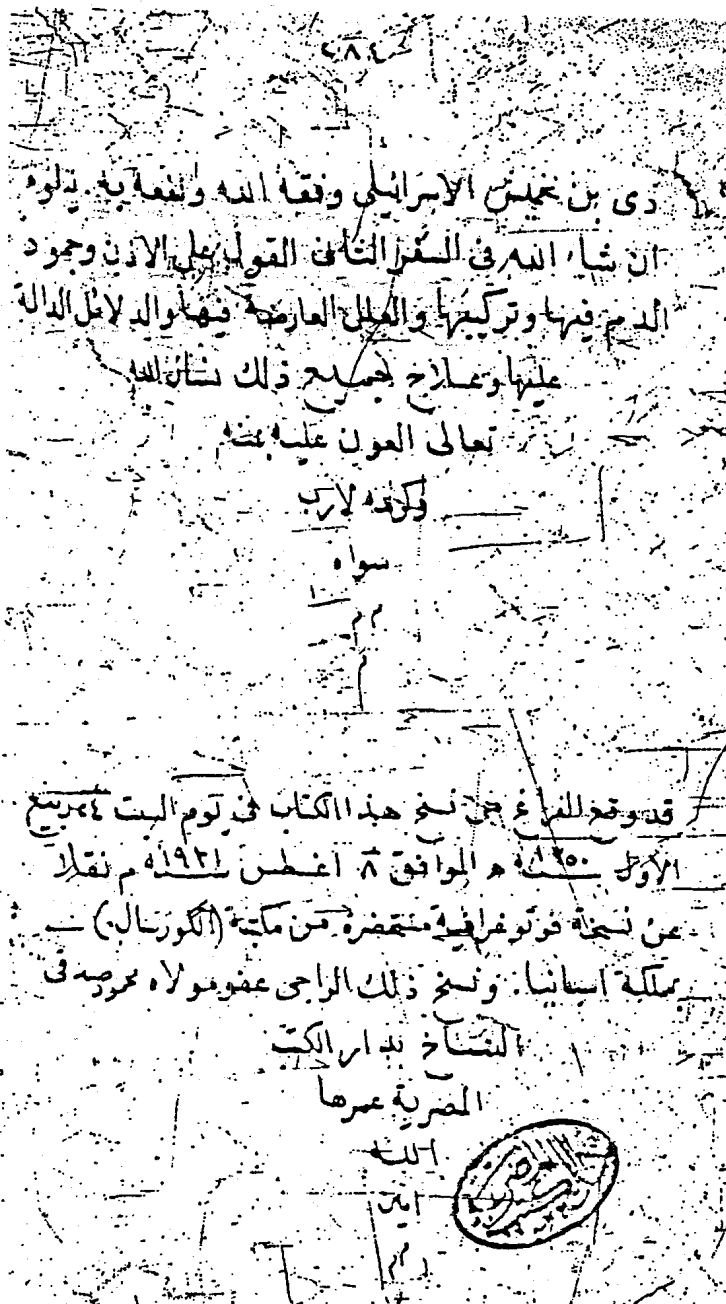 ٢٨٤
دى بن نخميش الاسرائيلى وفقه الله ونفعه به. يتلوه
ان شاء الله فى السفر الثانى القول على الاذن وجمود
الدم فيها وتركيبها والعلل العارضة فيها والدلائل الدالة
عليها وعلاج لجميع ذلك نسأل الله
تعالى العون عليه بمنه
وكرمه لا رب
سواه
م م
م
قد وقع الفراغ من نسخ هذا الكتاب فى يوم السبت ٢٤ ربيع
الأول سنة ١٣٥٠ ه الموافق ٨ أغسطس سنة ١٩٣١ م نقلا
عن نسخة فوتوغرافية مستحضرة من مكتبة (الكوريال)
بمملكة اسبانيا. ونسخ ذلك الراجى عفو مولاه محمود صدقى
النساخ بدار الكتب
المصرية عمرها
الله
امين
م م